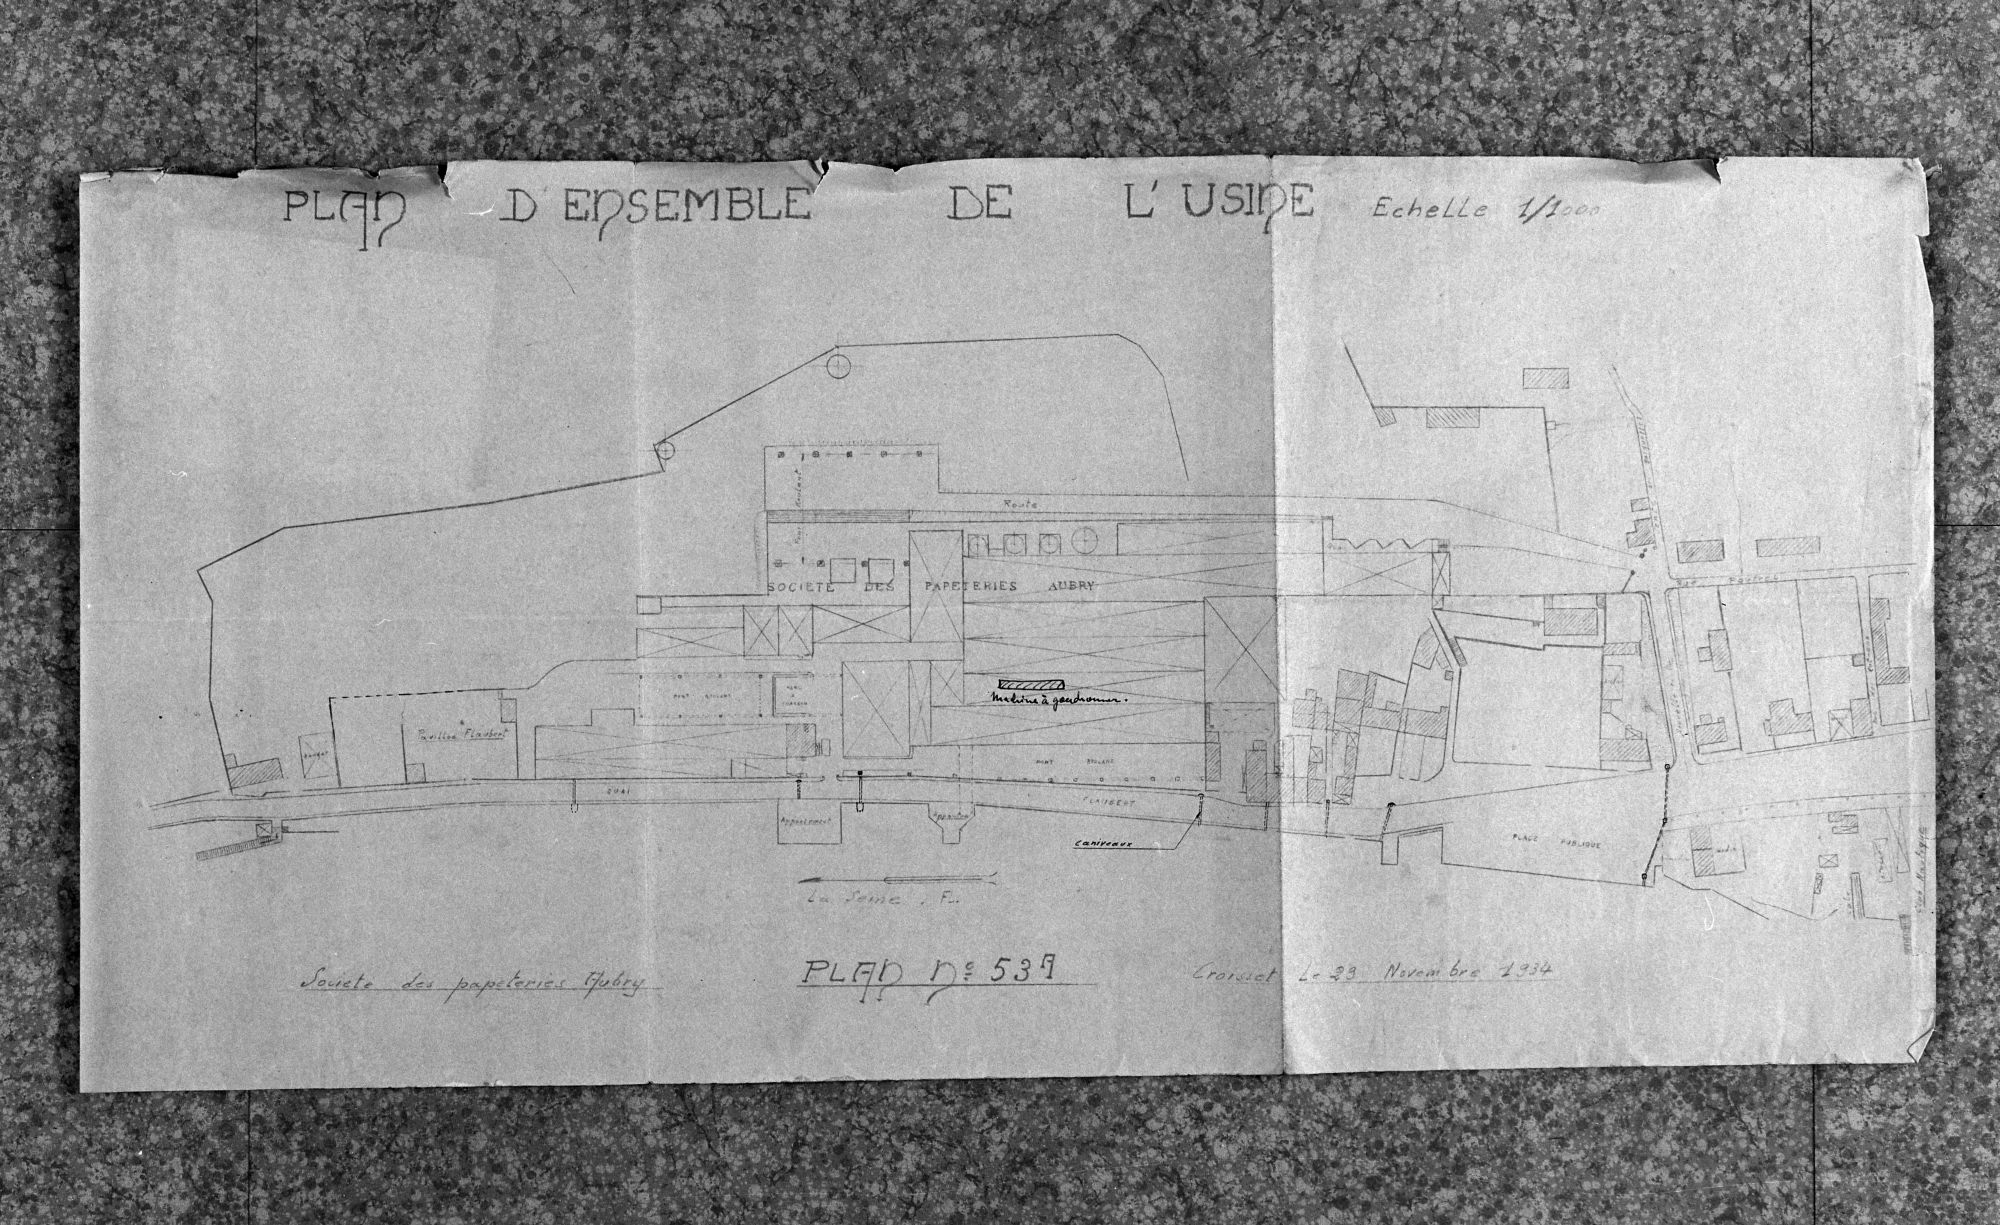 PLAN D'ENSEMBLE DE L'USINE Echelle 1/1000
Pont Roulant
Route
SOCIETE DES PAPETERIES AUBRY
Rue
PONT ROULANT
Machine à goudronner.
Pavillon Flaubert
Hangar
PONT ROULANT
QUAI FLAUBERT
Appontement
caniveaux
PLACE PUBLIQUE
La Seine. F..
Societe des papeteries Aubry
PLAN No 537
Croisset Le 29 Novembre 1934